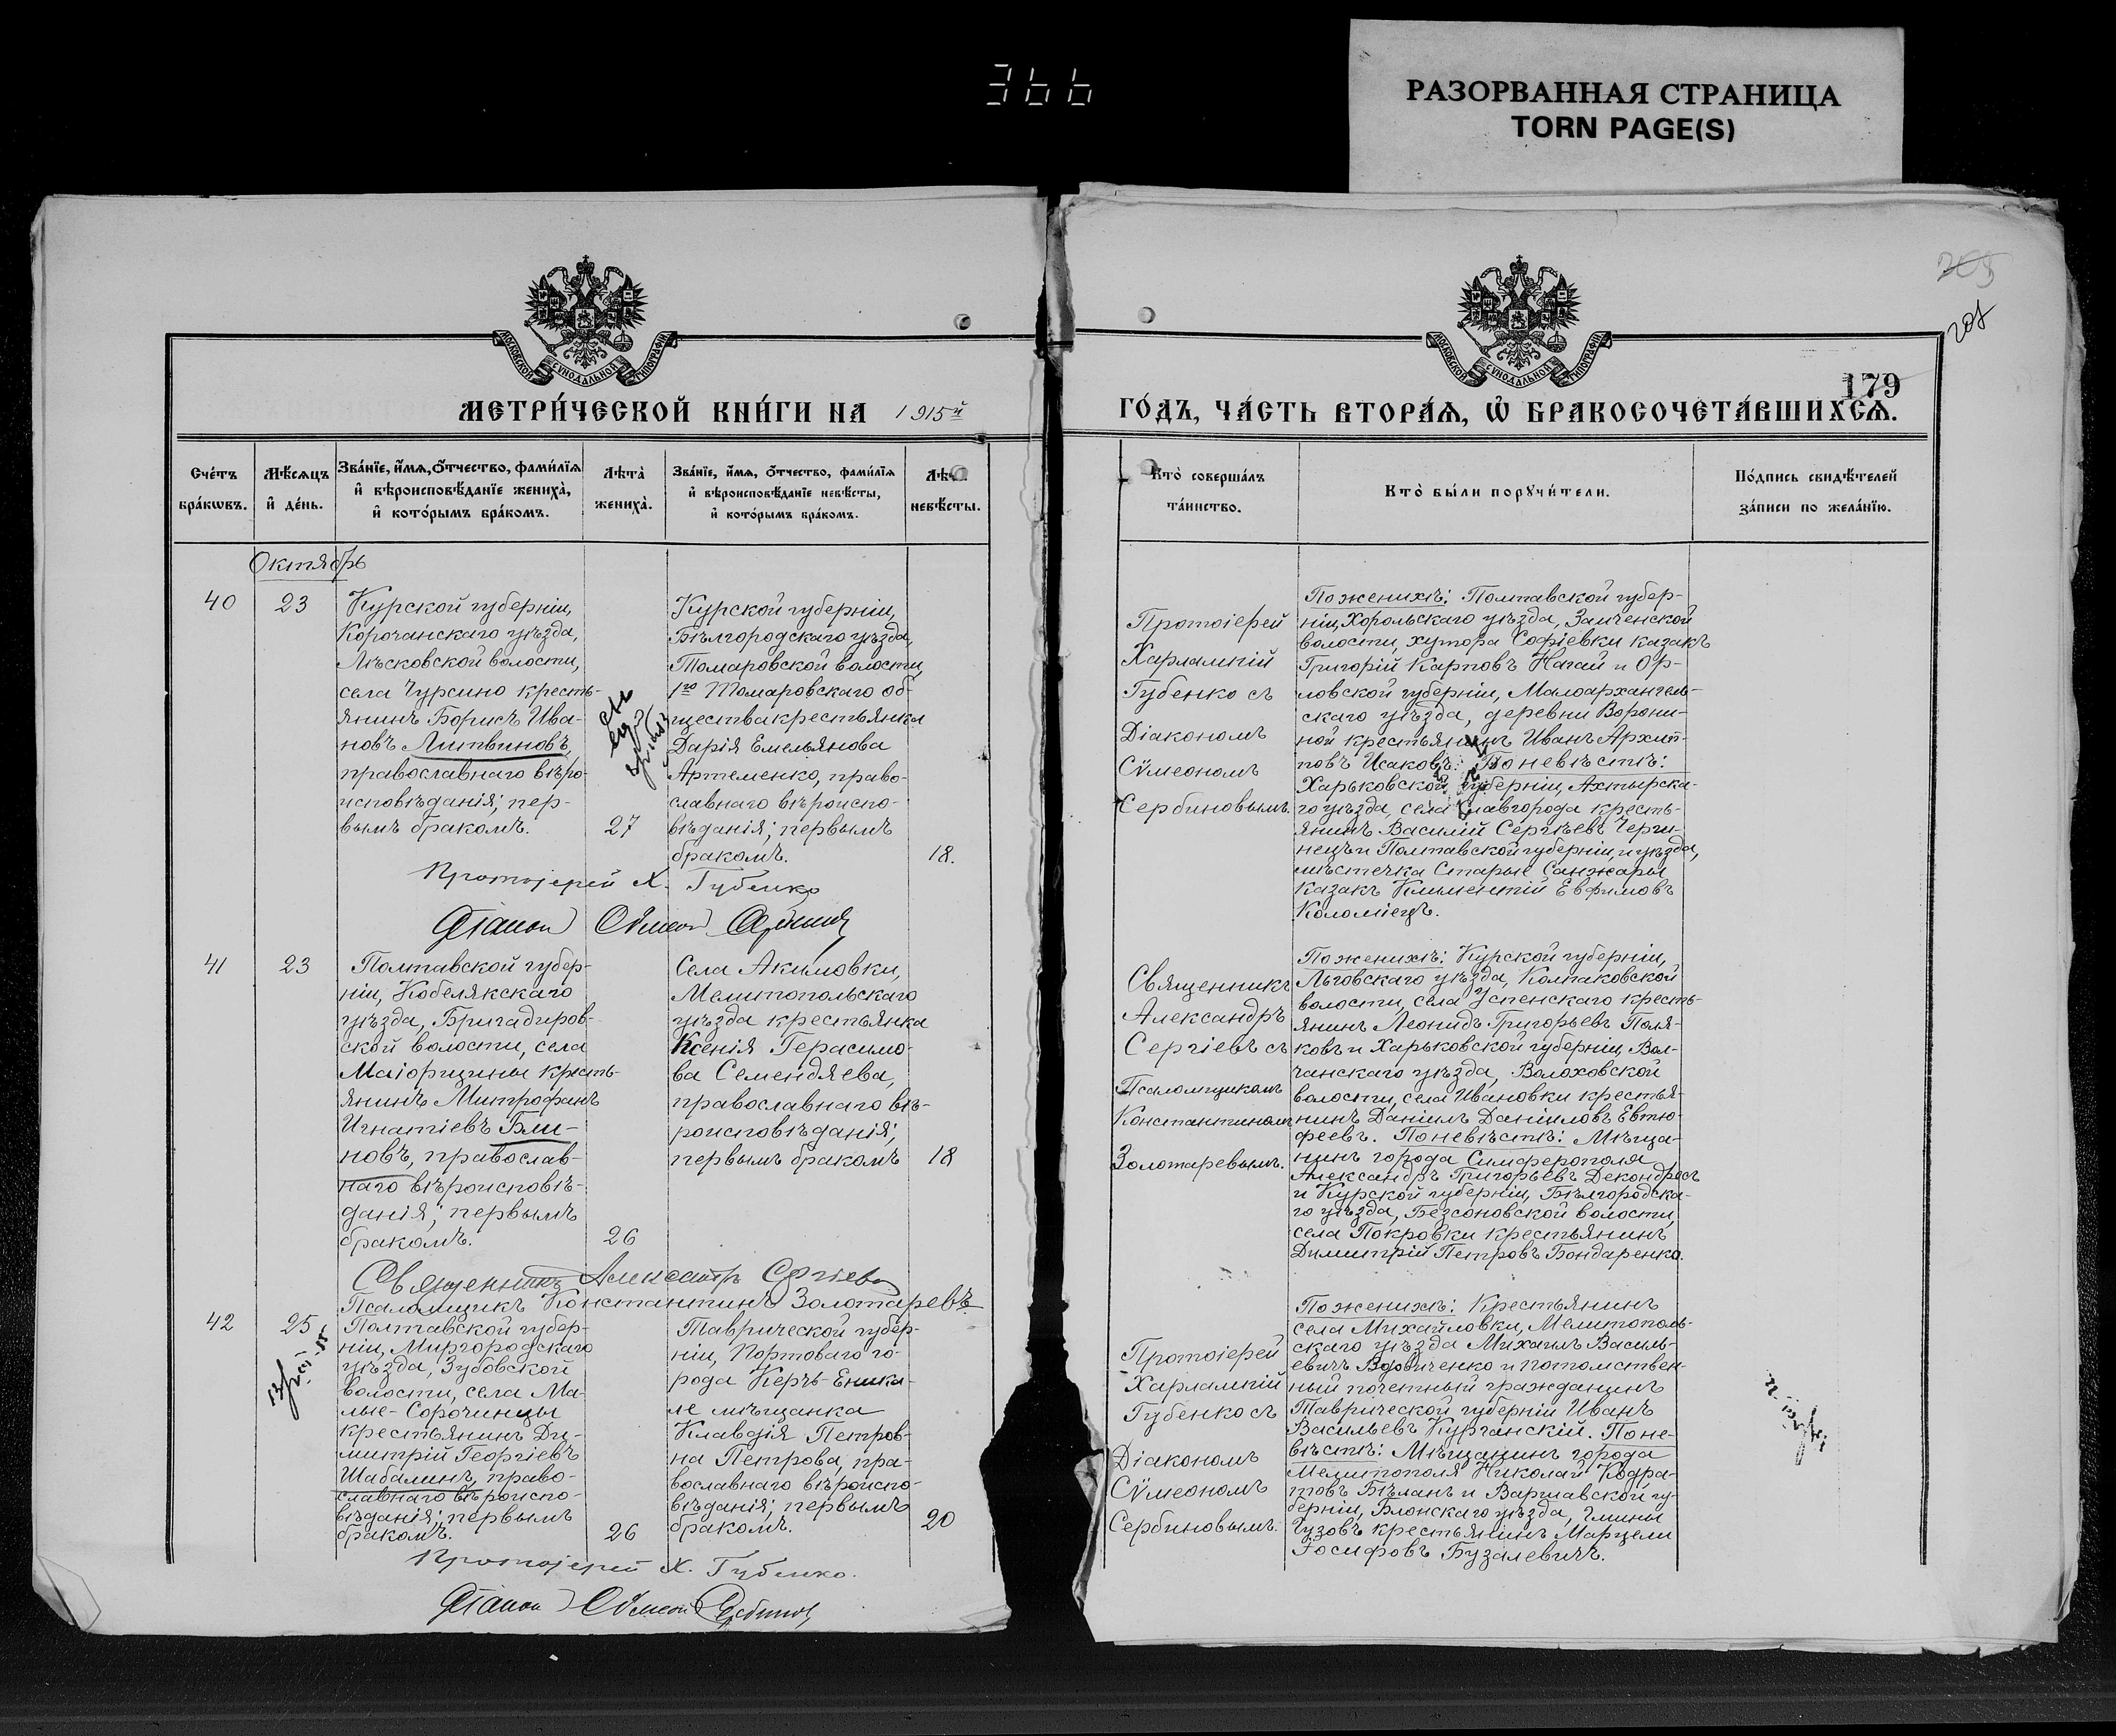 366
РАЗОРВАННАЯ СТРАНИЦА
TORN PAGE(S)
205
205
179
МОСКОВСКОЙ СѴНОДАЛЬНОЙ ТИПОГРАФІИ
МОСКОВСКОЙ СѴНОДАЛЬНОЙ ТИПОГРАФІИ
МЕТРИ́ЧЕСКОЙ КНИ́ГИ НА 1915й
ГО́ДЪ, ЧА́СТЬ ВТОРА́Я, Ѡ҆ БРАКОСОЧЕТА́ВШИХСѦ.
Сче́тъ
бра́кѡвъ.
Мѣ́сѧцъ
и҆ де́нь.
Зва́нїе, и҆́мѧ, ѻ҆́тчество, фами́лїѧ
и҆ вѣроисповѣ́данїе жениха̀,
и҆ кото́рымъ бра́комъ.
Лѣта̀
жениха̀.
Зва́нїе, и҆́мѧ, ѻ҆́тчество, фами́лїѧ
и҆ вѣроисповѣ́данїе невѣ́сты,
и҆ кото́рымъ бра́комъ.
невѣ́сты.
Кто̀ соверша́лъ
та́инство.
Кто̀ бы́ли порꙋчи́тели.
По́дпись свидѣ́телей
за́писи по жела́нїю.
Октябрь
40
23
Курской губерніи,
Корочанскаго уѣзда,
Лѣсковской волости,
села Чурсино кресть-
янинъ Борисъ Ива-
новъ Литвиновъ,
православнаго вѣро-
исповѣданія; пер-
вымъ бракомъ.
27
Курской губерніи,
Бѣлгородскаго уѣзда,
Томаровской волости,
1го Томаровскаго об-
щества крестьянка
Дарія Емельянова
Артеменко, право-
славнаго вѣроиспо-
вѣданія; первымъ
бракомъ.
18.
Протоіерей
Харлампій
Губенко съ
Діакономъ
Сѵмеономъ
Сербиновымъ.
По женихѣ: Полтавской губер-
ніи, Хорольскаго уѣзда, Заиченской
волости, хутора Софіевки казакъ
Григорій Карповъ Нагай и Ор-
ловской губерніи, Малоархангель-
скаго уѣзда, деревни Ворони-
ной крестьянинъ Иванъ Архип-
повъ Исаковъ: По невѣстѣ:
Харьковской губерніи, Ахтырска-
го уѣзда села Славгорода кресть-
янинъ Василій Сергѣевъ Черги-
нецъ и Полтавской губерніи, и уѣзда,
мѣстечка Старые Санжары
казакъ Климентій Евфимовъ
Коломіецъ.
Протоіерей Х. Губенко
Діаконъ Сѵмеонъ Сербиновъ
41
23
Полтавской губер-
ніи, Кобелякскаго
уѣзда, Бригадиров-
ской волости, села
Маіорщины кресть-
янинъ Митрофанъ
Игнатіевъ Бли-
новъ, православ-
наго вѣроисповѣ-
данія; первымъ
бракомъ.
26
Села Акимовки,
Мелитопольскаго
уѣзда крестьянка
Ксенія Герасимо-
ва Семендяева,
православнаго вѣ-
роисповѣданія;
первымъ бракомъ
18
Священникъ
Александръ
Сергіевъ съ
Псаломщикомъ
Константиномъ
Золотаревымъ.
По женихѣ: Курской губерніи,
Льговскаго уѣзда, Колпаковской
волости, села Успенскаго кресть-
янинъ Леонидъ Григорьевъ Поля-
ковъ и Харьковской губерніи, Вол-
чанскаго уѣзда, Волоховской
волости, села Ивановки крестья-
нинъ Даніилъ Даніиловъ Евтю-
феевъ. По невѣстѣ: Мѣща-
нинъ города Симферополя
Александръ Григорьевъ Декондресъ
и Курской губерніи, Бѣлгородска-
го уѣзда, Безсоновской волости,
села Покровки крестьянинъ
Димитрій Петровъ Бондаренко.
Священникъ Александръ Сергіевъ
Псаломщикъ Константинъ Золотаревъ
42
25
Полтавской губер-
ніи, Миргородскаго
уѣзда, Зубовской
волости, села Ма-
лые-Сорочинцы
крестьянинъ Ди-
митрій Георгіевъ
Шабалинъ, право-
славнаго вѣроиспо-
вѣданія; первымъ
бракомъ.
26
Таврической губер-
ніи, Портоваго го-
рода Керчь-Еника-
ле мѣщанка
Клавдія Петров-
на Петрова, пра-
вославнаго вѣроиспо-
вѣданія; первымъ
бракомъ.
20
Протоіерей
Харлампій
Губенко съ
Діакономъ
Сѵмеономъ
Сербиновымъ.
По женихѣ: Крестьянинъ
села Михайловки, Мелитополь-
скаго уѣзда Михаилъ Василь-
евичъ Вдовиченко и потомствен-
ный почетный гражданинъ
Таврической губерніи Иванъ
Васильевъ Курганскій. По не-
вѣстѣ: Мѣщанинъ города
Мелитополя Николай Кодра-
товъ Бѣланъ и Варшавской гу-
берніи, Блонскаго уѣзда, Гмины
Чузовъ крестьянинъ Марцели
Іосифовъ Бузалевичъ.
Протоіерей Х. Губенко.
Діаконъ Сѵмеонъ Сербиновъ